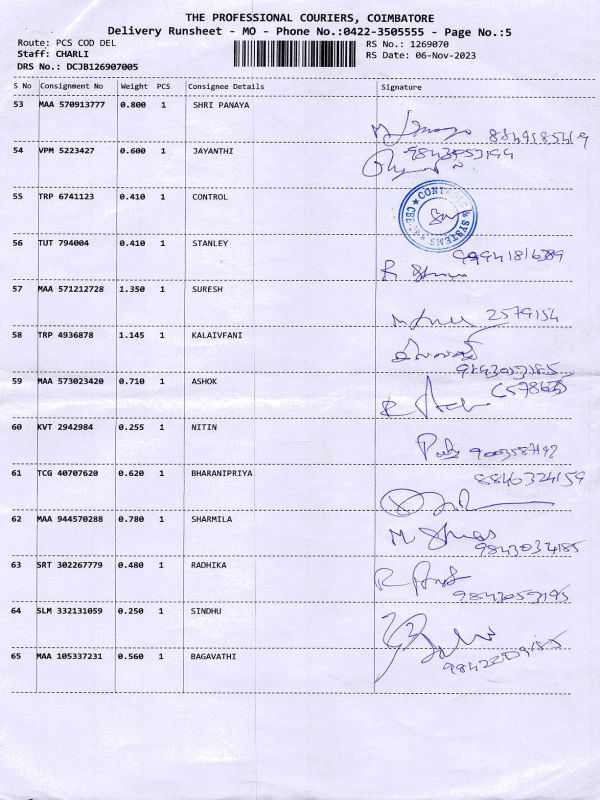 THE PROFESSIONAL COURIERS, COIMBATORE
Delivery Runsheet - MO - Phone No.:0422-3505555 - Page No.:5
Route: PCS COD DEL RS No.: 1269070
Staff: CHARLI RS Date: 06-Nov-2023
DRS No.: DCJB126907005
S No Consignment No Weight PCS Consignee Details Signature
53 MAA 570913777 0.800 1 SHRI PANAYA
54 VPM 5223427 0.600 1 JAYANTHI
9843053199
55 TRP 6741123 0.410 1 CONTROL
56 TUT 794004 0.410 1 STANLEY
57 MAA 571212728 1.350 1 SURESH
2579154
58 TRP 4936878 1.145 1 KALAIVFANI
59 MAA 573023420 0.710 1 ASHOK
60 KVT 2942984 0.255 1 NITIN
61 TCG 40707620 0.620 1 BHARANIPRIYA
8846324159
62 MAA 944570288 0.780 1 SHARMILA
9843034185
63 SRT 302267779 0.480 1 RADHIKA
64 SLM 332131059 0.250 1 SINDHU
65 MAA 105337231 0.560 1 BAGAVATHI